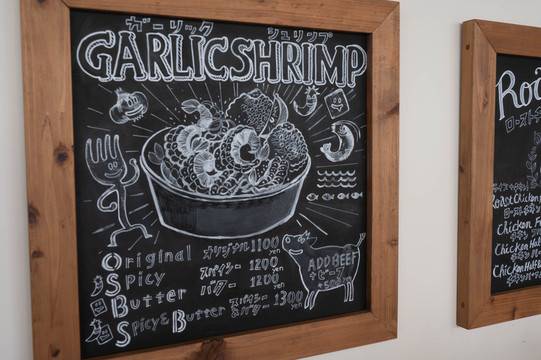 ガーリック シュリンプ
GARLIC SHRIMP
Original オリジナル 1100 yen
Spicy スパイシー 1200 yen
Butter バター 1200 yen
Spicy & Butter スパイシー バター 1300 yen
ADD BEEF
+ビーフ
Ro
ロースト
Roast Chicken
Chicken
チキン
Chicken Hal
Chicken Half